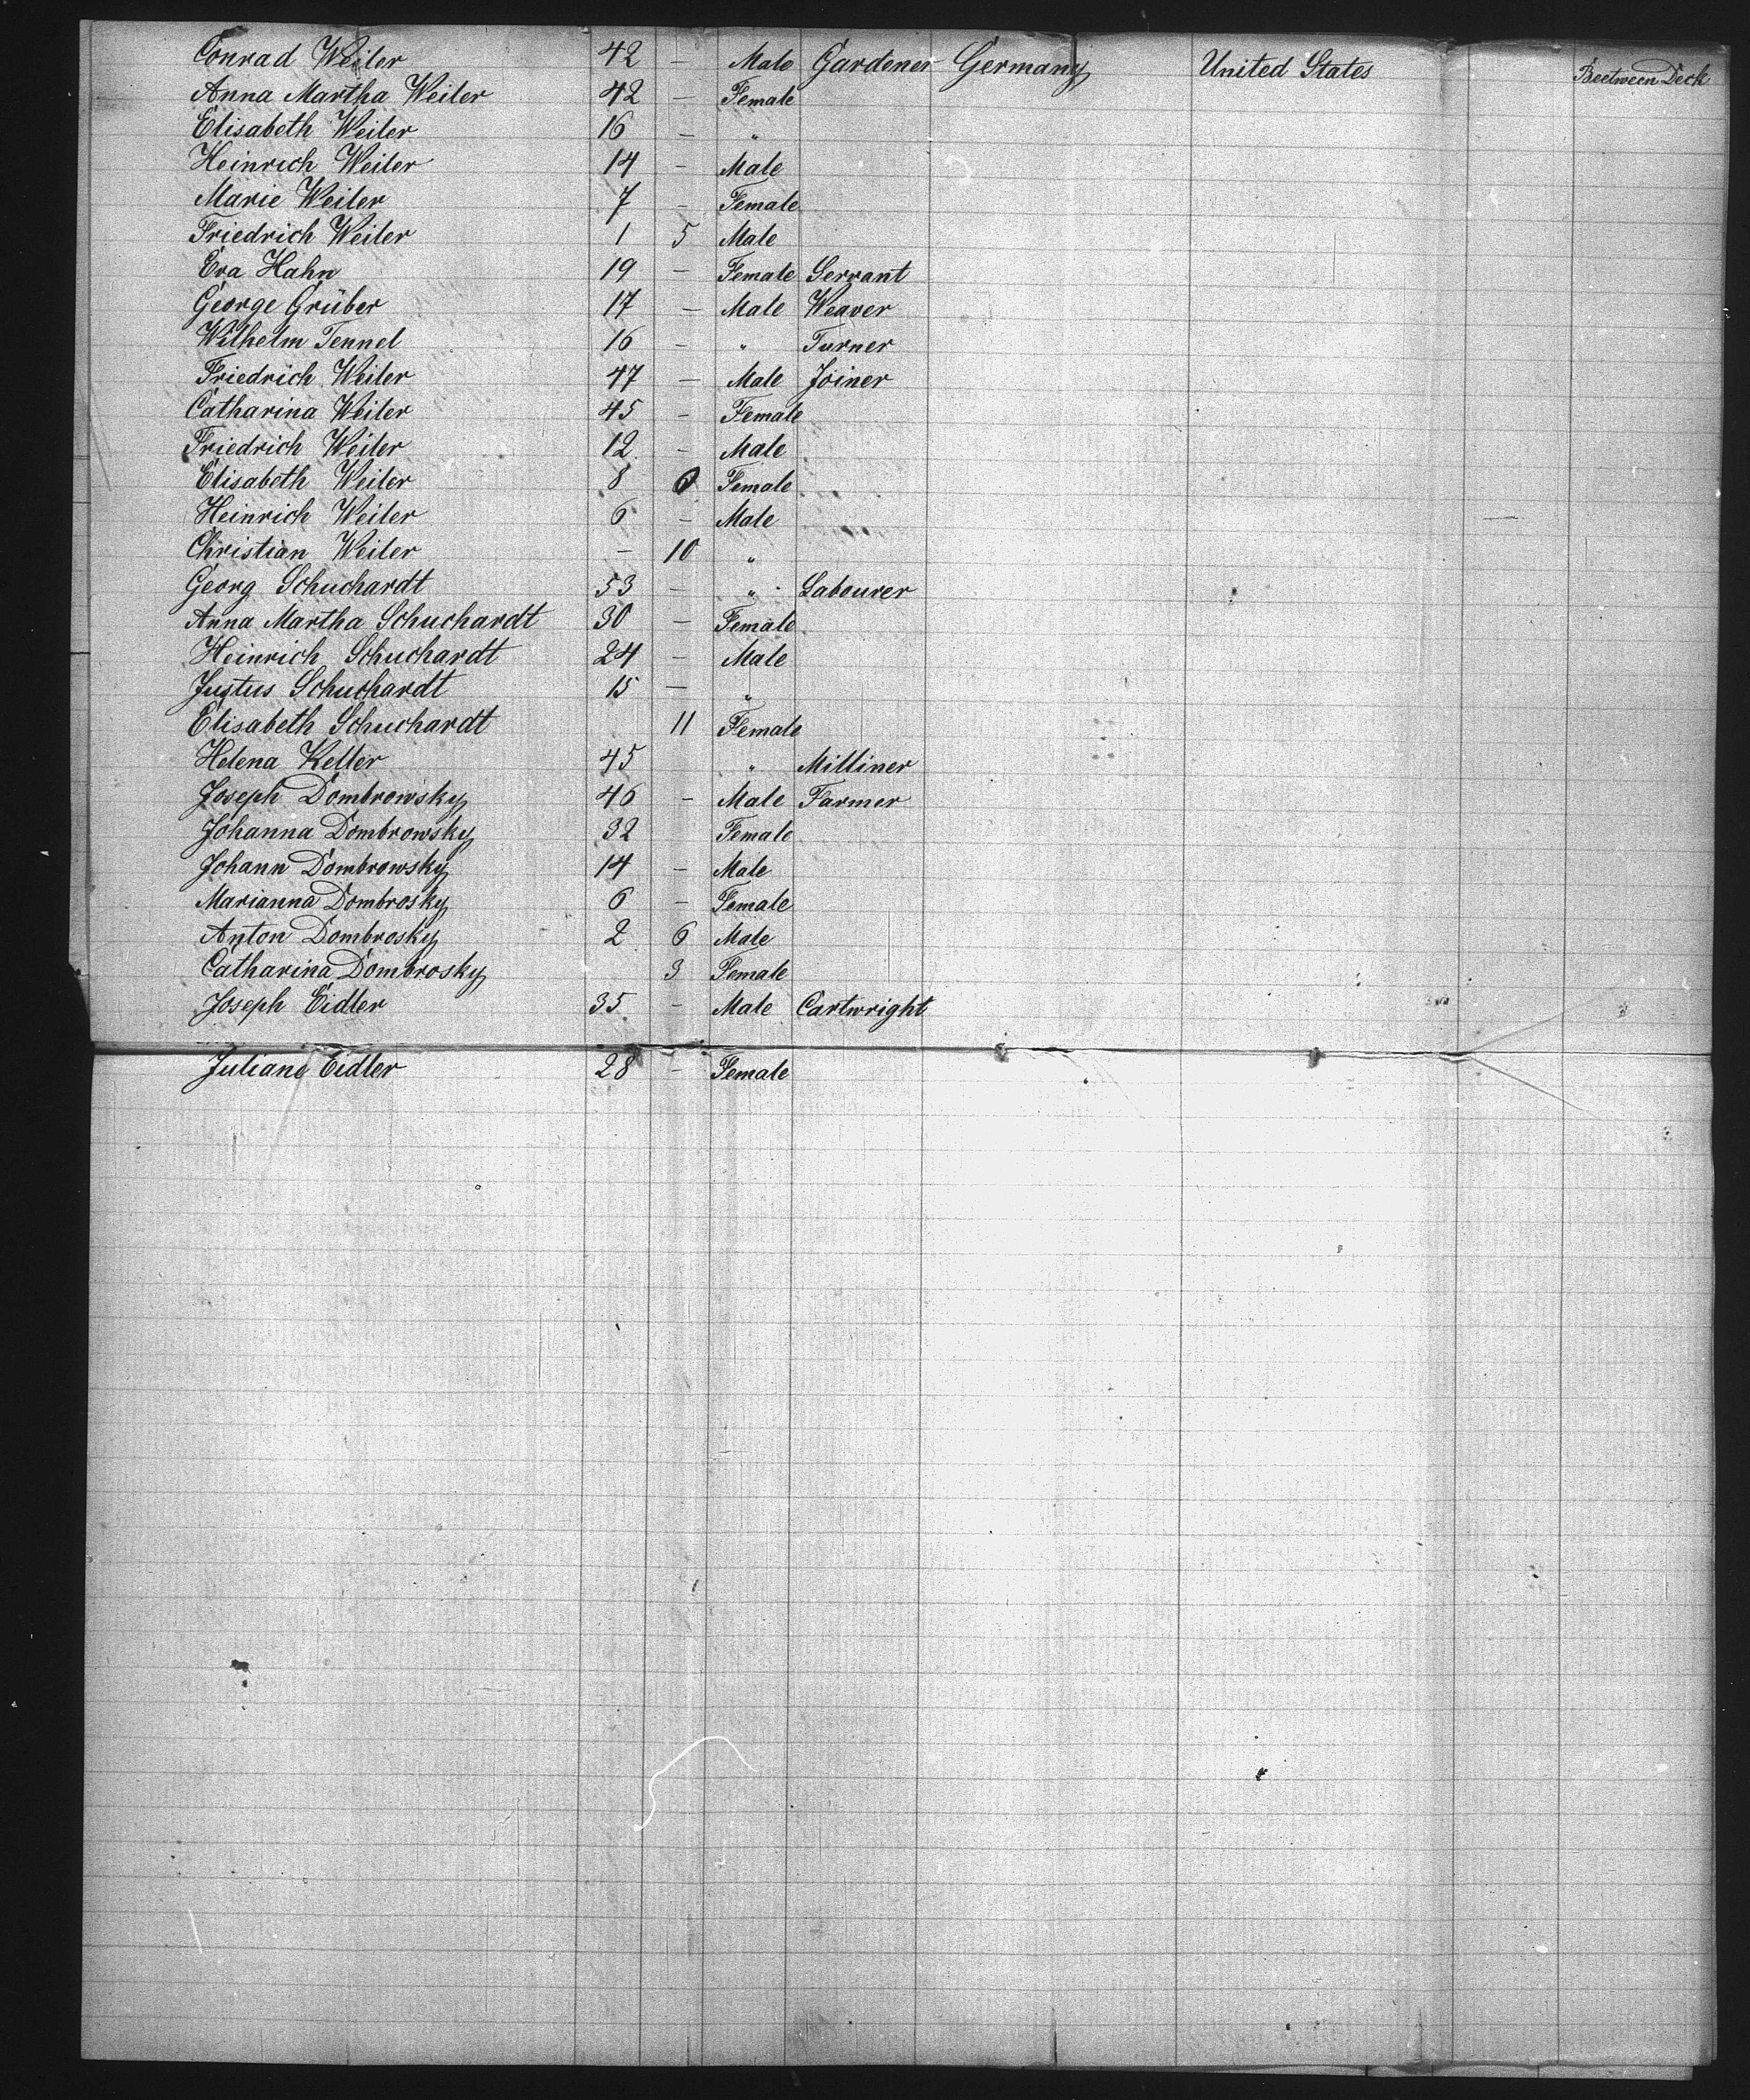 Conrad Weiler 42 — Male Gardener Germany United States Beetween Deck
Anna Martha Weiler 42 — Female
Elisabeth Weiler 16 — "
Heinrich Weiler 14 — Male
Marie Weiler 7 — Female
Friedrich Weiler 1 5 Male
Eva Hahn 19 — Female Servant
George Grüber 17 — Male Weaver
Wilhelm Tennel 16 — " Turner
Friedrich Weiler 47 — Male Joiner
Catharina Weiler 45 — Female
Friedrich Weiler 12 — Male
Elisabeth Weiler 8 6 Female
Heinrich Weiler 6 — Male
Christian Weiler — 10 "
Georg Schuchardt 53 — " Labourer
Anna Martha Schuchardt 30 — Female
Heinrich Schuchardt 24 — Male
Justus Schuchardt 15 — "
Elisabeth Schuchardt 11 Female
Helena Keller 45 " Milliner
Joseph Dombrowsky 46 — Male Farmer
Johanna Dombrowsky 32 Female
Johann Dombrowsky 14 — Male
Marianna Dombrosky 6 — Female
Anton Dombrosky 2 6 Male
Catharina Dombrosky 3 Female
Joseph Eidler 35 — Male Cartwright
Juliane Eidler 28 — Female